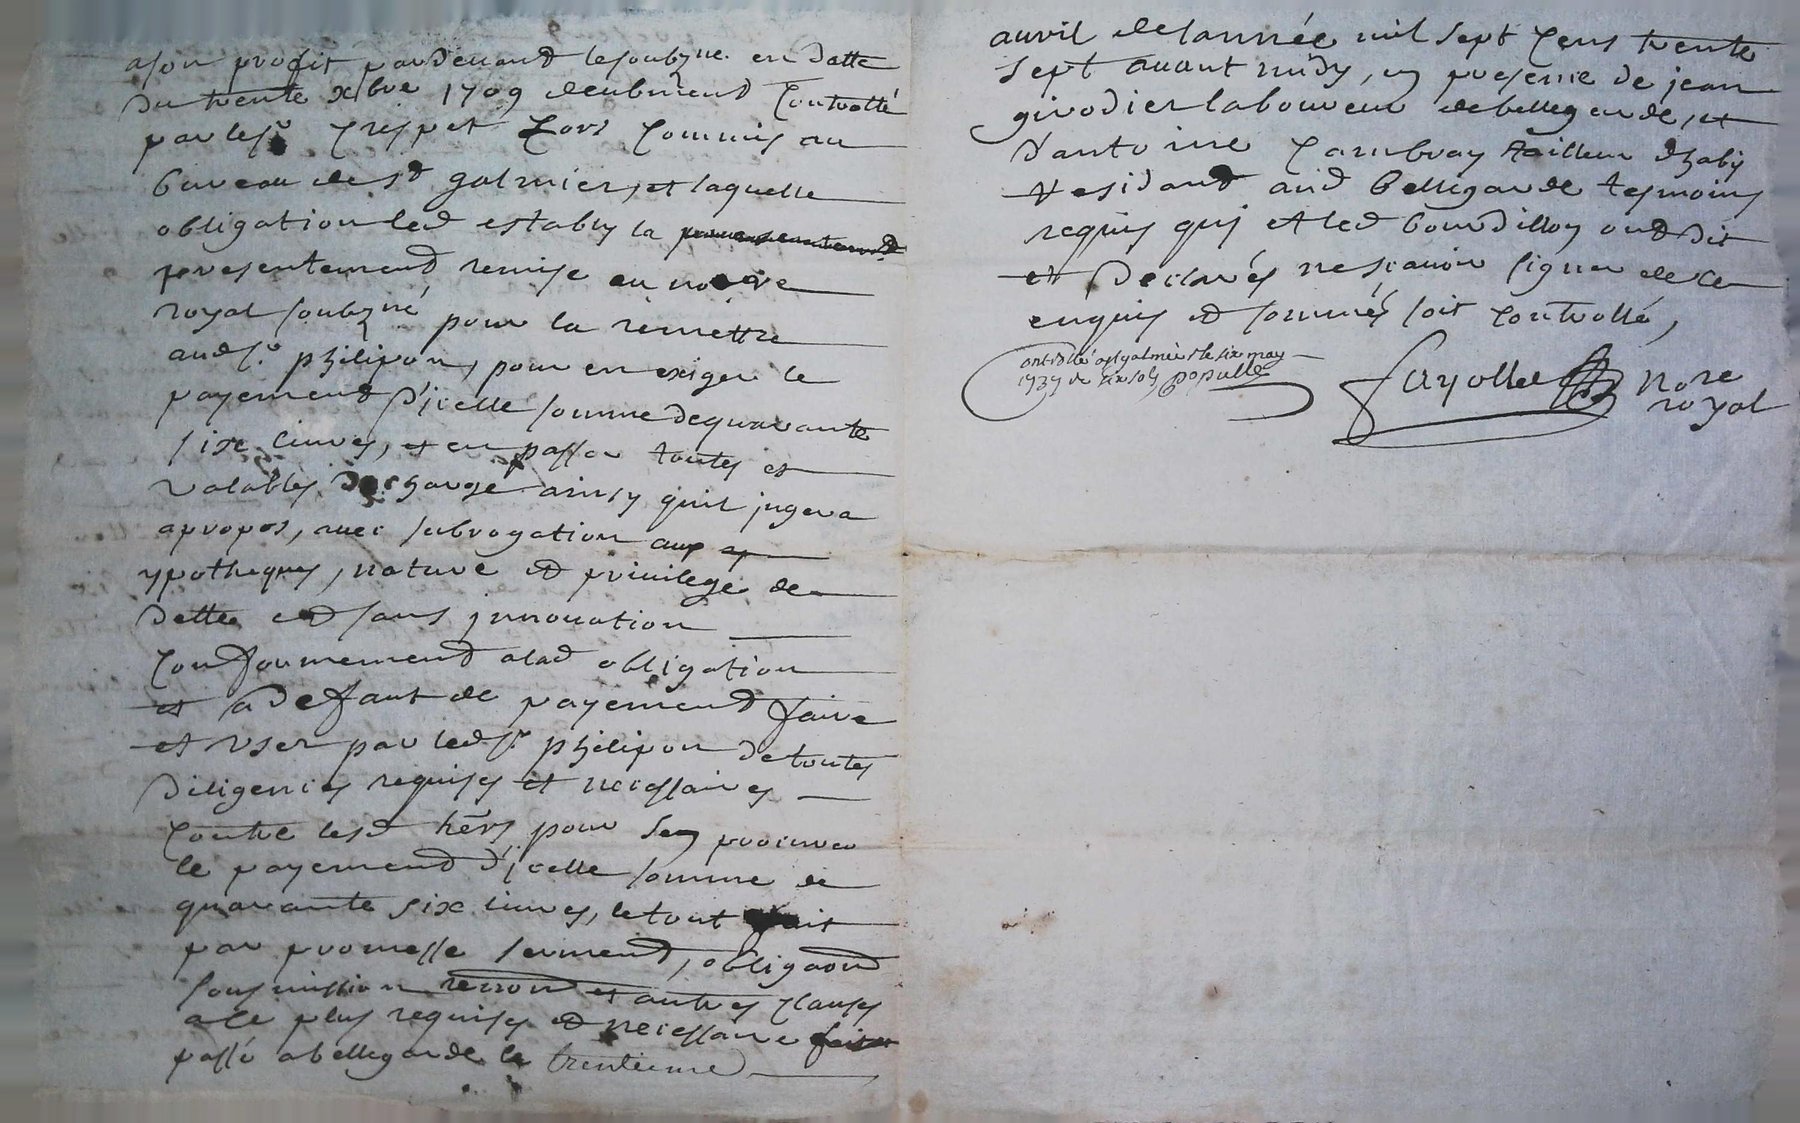 ason profit pardevand le soubzne en datte
du trente xbre 1709 deubmend controllé
par le sr crespet lors commis au
bureau de st galmier, et laquelle
obligation led estably la
presentemend remise au no.re
royal soubzné pour la remettre
aud sr philipon, pour en exiger le
payemend d'jcelle somme de quarante
six livres, et en passer toutes et
valables decharge ainsy quil jugera
apropos, avec subrogation aux
ypotheques, nature et privilege de
dette et sans jnnovation
conformemend alad obligation
et a defaut de payemend faire
et user par led sr philipon de toutes
diligences requises et necessaires
contre lesd hérs pour sen procurer
le payemend d'jcelle somme de
quarante six livres, le tout fait
par promesse sermend, obligaond
sousmission renond et autres clauses
a ce plus requises et necessaire
passé a bellegarde le trentieme
avril de lannée mil sept cens trente
sept avant midy, en presence de jean
girodier laboureur de bellegarde, et
d'antoine cambray tailleur dhabj
residand aud bellegarde tesmoins
requis quj et led bourdillon ond dit
et declarés ne scavoir signer de ce
enquis et sommés soit controllé,
controllé a st galmier le six may
1737 re six sols populle
fayolle no.re
royal